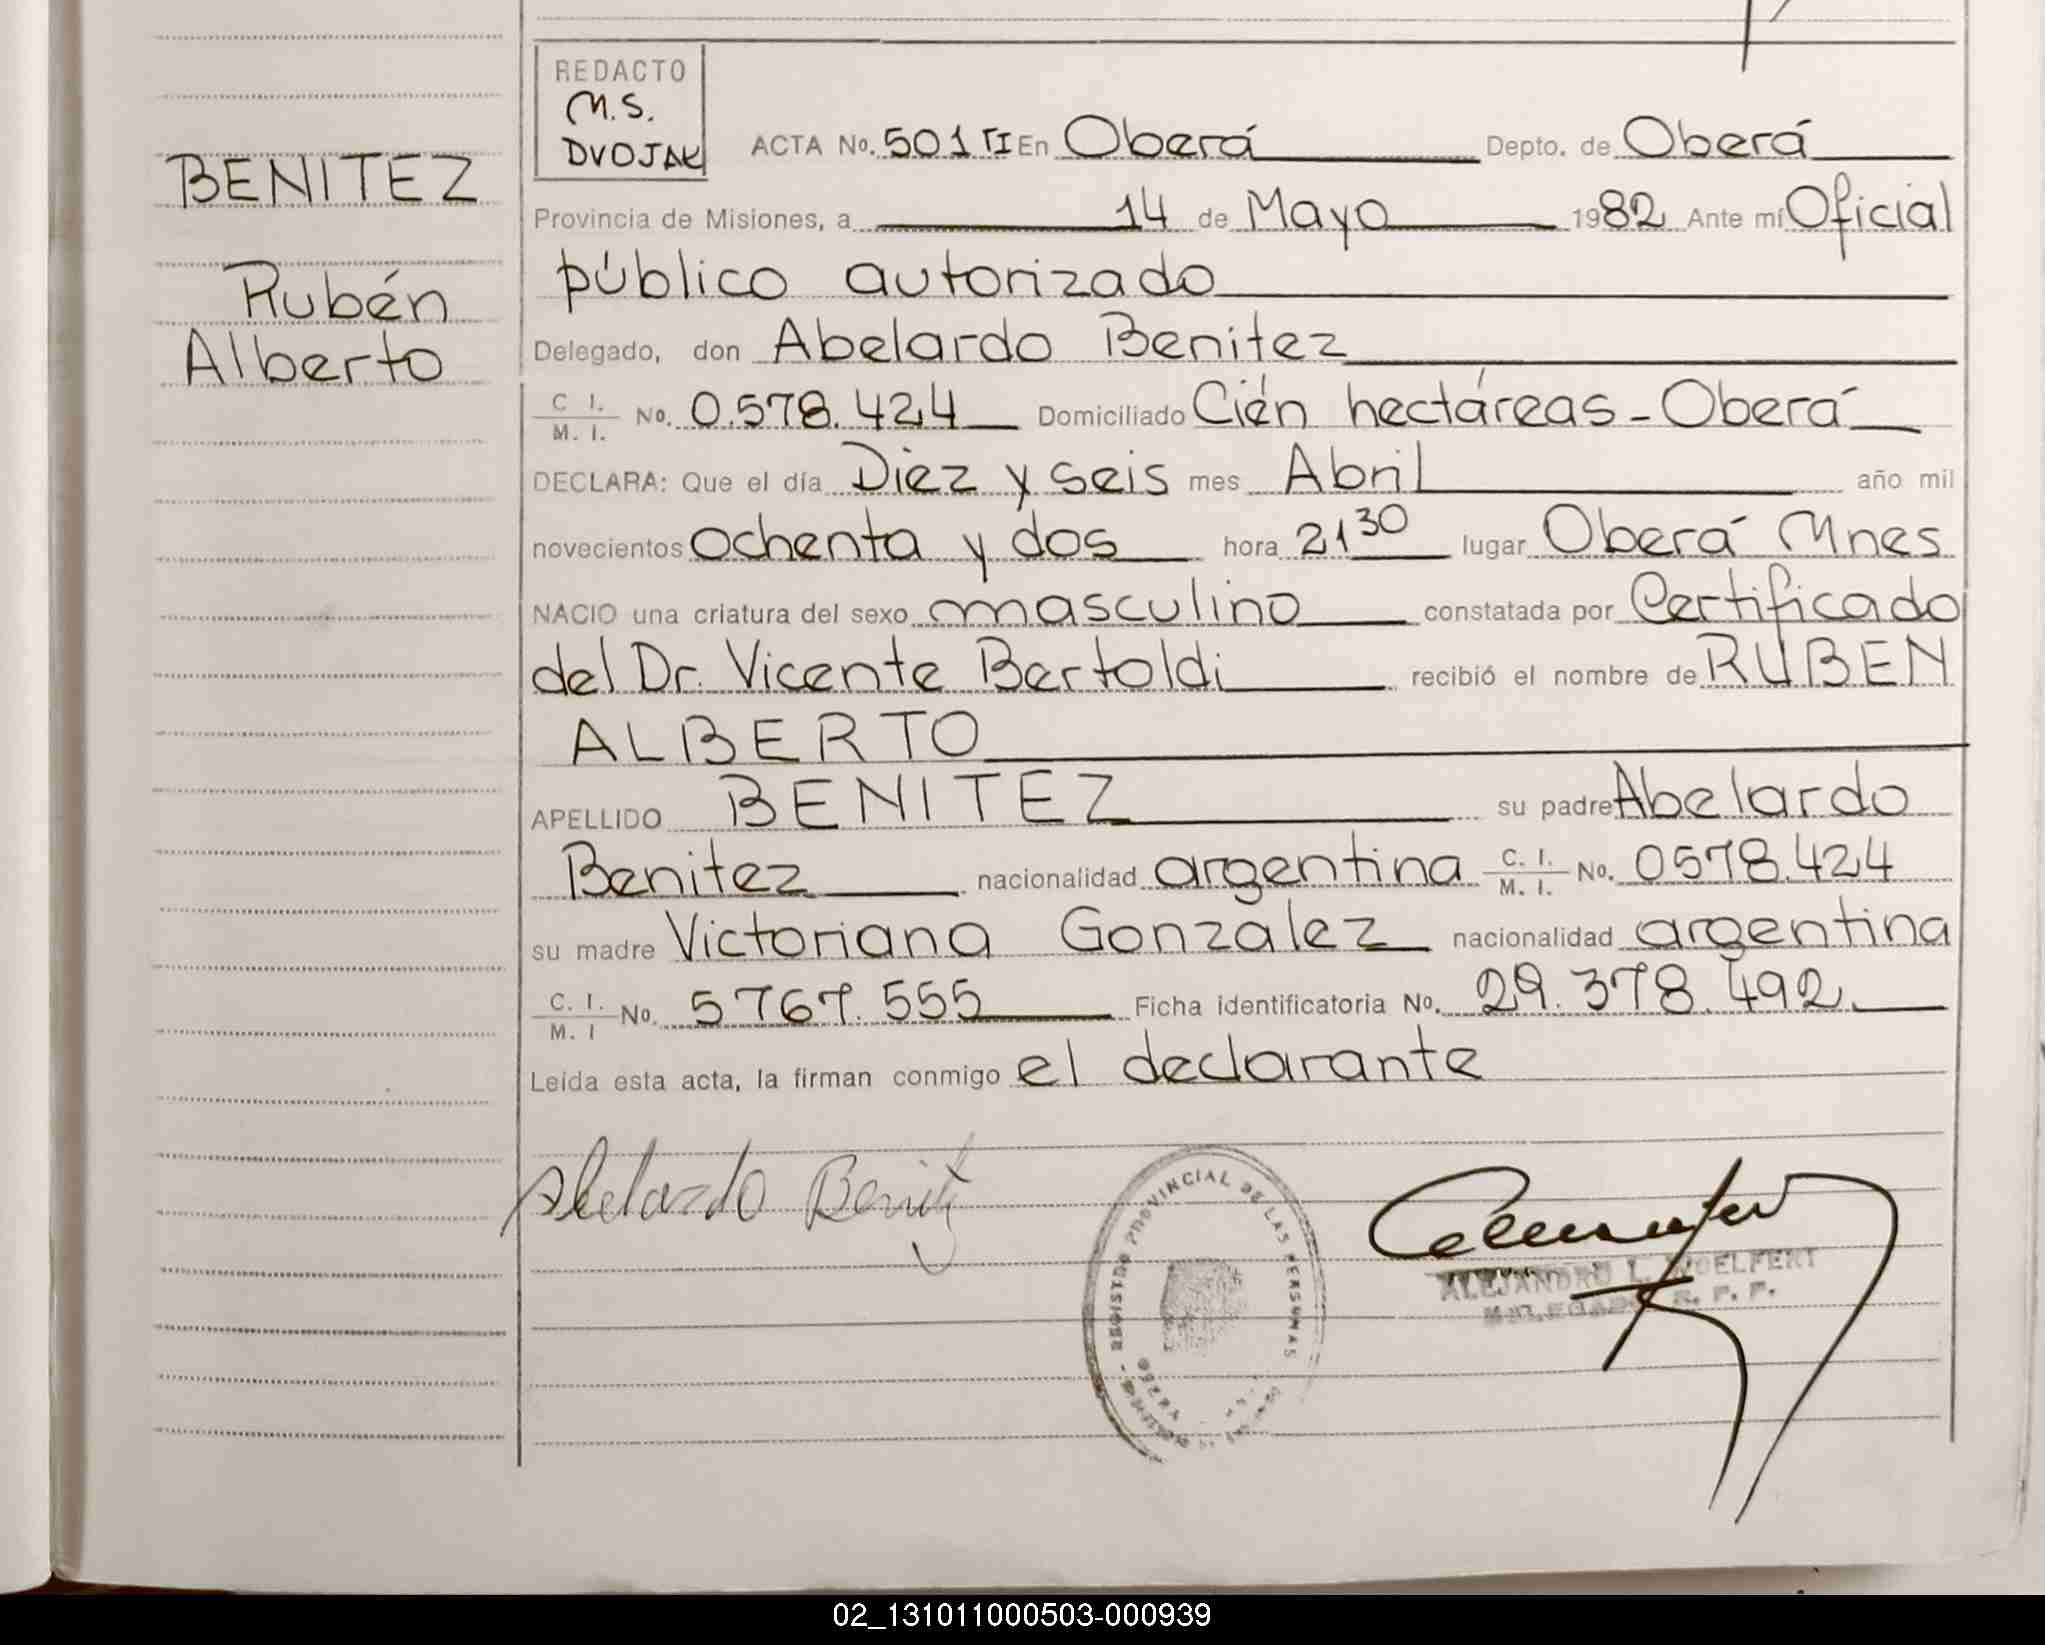 REDACTO
M.S.
DVOJAK
ACTA No. 501 TI En Oberá Depto. de Oberá
BENITEZ
Provincia de Misiones, a 14 de Mayo 1982 Ante mí Oficial
público autorizado
Rubén
Alberto
Delegado, don Abelardo Benitez
C I.
M. I. No. 0.578.424 Domiciliado Cién hectáreas - Oberá
DECLARA: Que el día Diez y seis mes Abril año mil
novecientos ochenta y dos hora 21 30 lugar Oberá Mnes
NACIO una criatura del sexo masculino constatada por Certificado
del Dr. Vicente Bertoldi recibió el nombre de RUBEN
ALBERTO
APELLIDO BENITEZ su padre Abelardo
Benitez nacionalidad argentina C. I.
M. I. No. 0578.424
su madre Victoriana Gonzalez nacionalidad argentina
C. I.
M. I No. 5767.555 Ficha identificatoria No. 29.378.492.
Leída esta acta, la firman conmigo el declarante
Abelardo Benitez
REGISTRO PROVINCIAL DE LAS PERSONAS
ALEJANDRO L. WOELFERT
DELEGADO R. P. P.
02_131011000503-000939